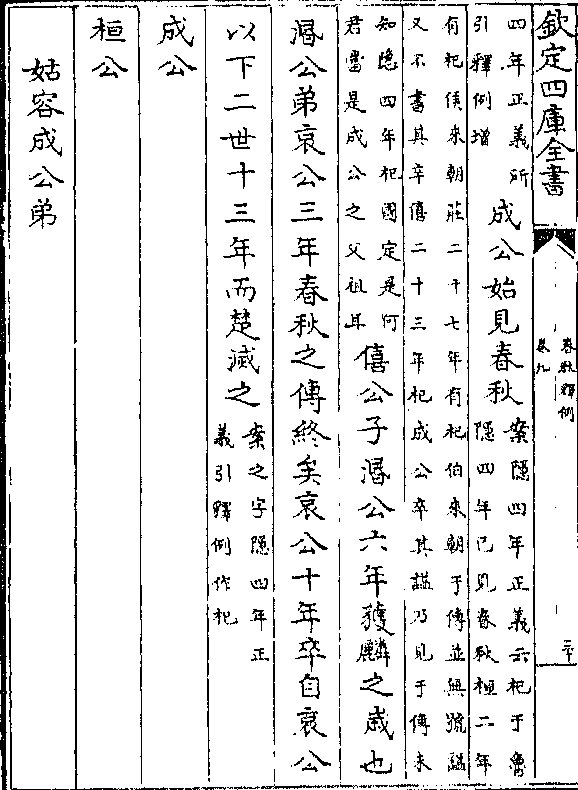 欽定四庫全書
春秋釋例
卷九
四年正義所
引釋例增
成公始見春秋
案隱四年正義云杞于魯
隱四年已見春秋桓二年
有杞侯來朝莊二十七年有杞伯來朝于傳並無號諡
又不書其卒僖二十三年杞成公卒其諡乃見于傳未
知隱四年杞國定是何
君當是成公之父祖耳
僖公子湣公六年獲麟之歲也
湣公弟哀公三年春秋之傳終矣哀公十年卒自哀公
以下二世十三年而楚滅之
案之字隱四年正
義引釋例作杞
成公
桓公
姑容成公弟